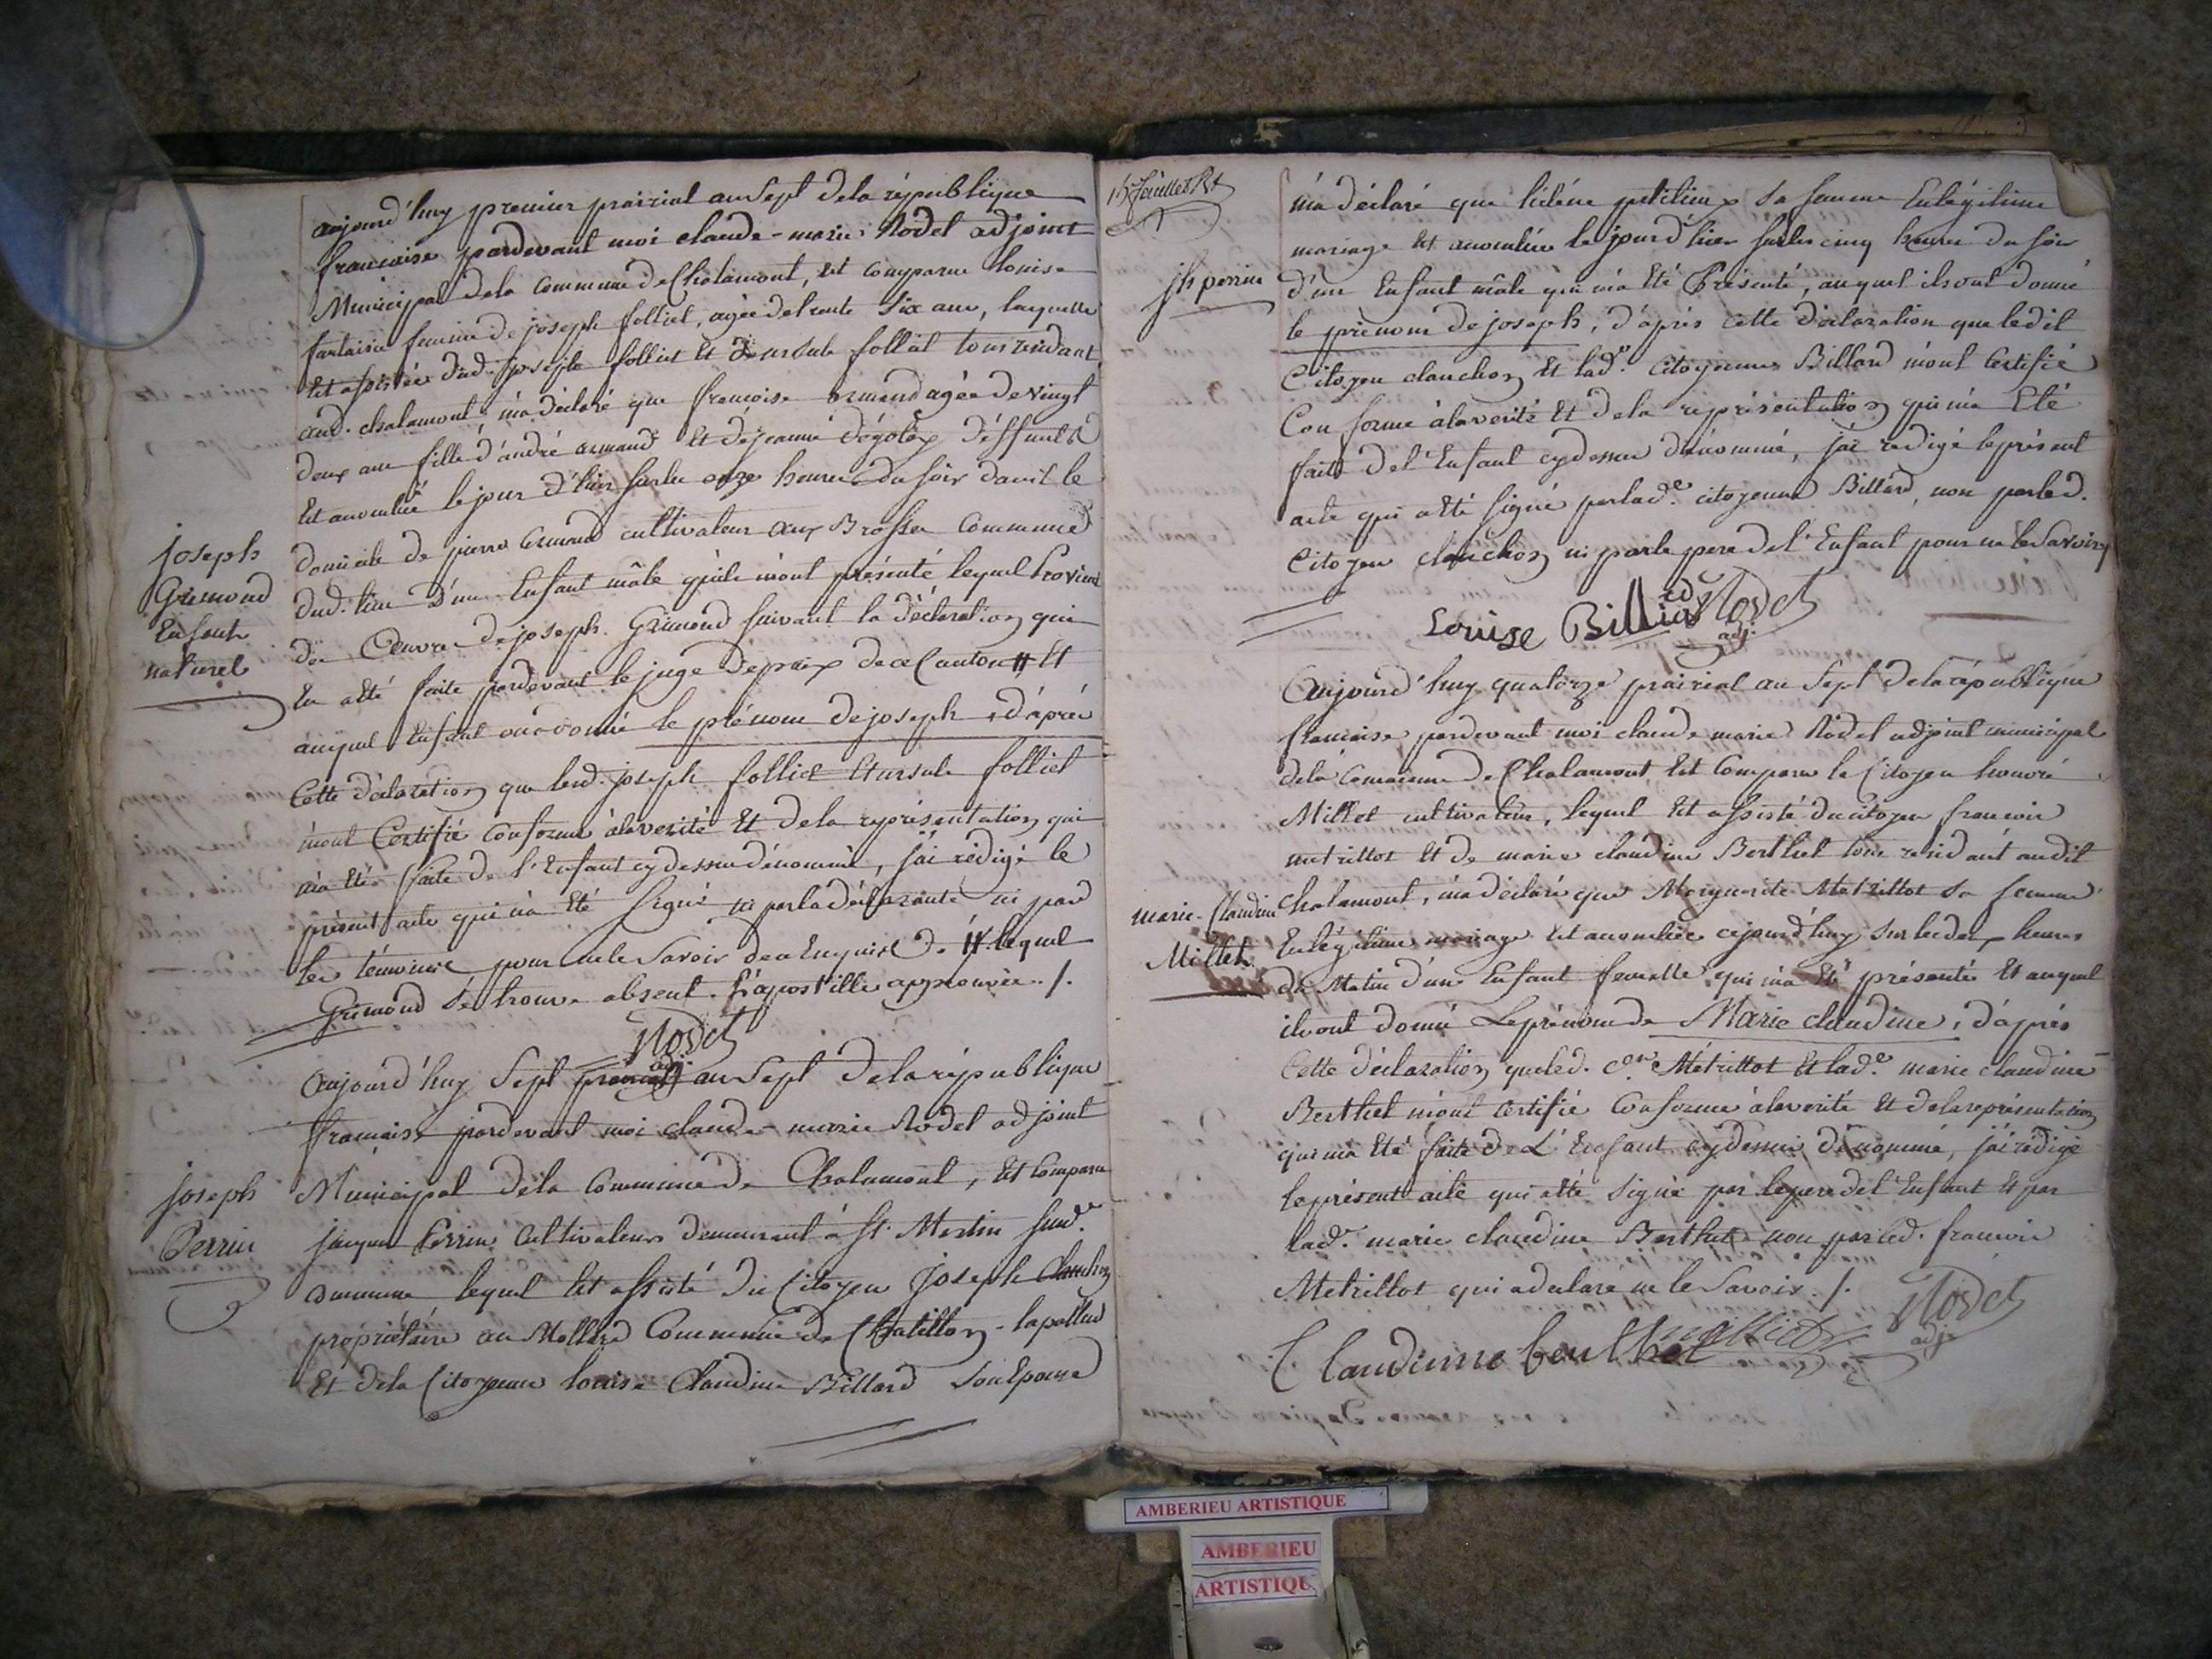 aujourd'huy premier prairial an Sept dela république
francaise pardevant moi claude-marie Nodet adjoint
Municipal dela commune de Chalamont, est comparue Louise
fontaine femme de joseph folliet, agée de trente Six ans, laquelle
Est assistée dud. joseph folliet Et Ursule folliet tous residant
aud. chalamont m'a déclaré que francoise armand agée de vingt
deux ans fille d'andré armand Et de jeanne dégoléx déffunts
Est accouchée le jour d'hier sur les onze heures du soir dans le
domicile de pierre Armand cultivateur aux Brosses Commune
dud. lieu d'un Enfant mâle qu'ils m'ont présenté lequel Provient
des Oeuvres de joseph Grimond suivant la déclaration qui
En a été faite pardevant le juge de paix de ce Canton # Et
auquel Enfant on a donné le prénom de joseph, d'après
Cette déclaration que lesd. joseph folliet Et ursule folliet
m'ont Certifié conforme à la verité Et de la représentation qui
m'a Eté faite de l'Enfant cydessus dénommé, j'ai rédigé le
présent acte qui n'a Eté Signé ni par la déclarante ni par
les témoins pour ne le Savoir de ce Enquis. # lequel
Grimond se trouve absent. L'apostille approuvée ./.
Nodet
adj.
joseph
Grimond
Enfant
naturel
aujourd'huy Sept prairial an Sept dela république
francaise pardevant moi claude-marie Nodet adjoint
Municipal dela Commune de Chalamont, Est Comparu
jacques Perrin Cultivateur demeurant à St. Martin susd.e
commune lequel Est assisté du Citoyen Joseph Clauchon
propriétaire au Mollard Commune de Chatillon-lapallud
Et dela Citoyenne louise Claudine Billard Son Epouse
joseph
Perrin
15 feuillet Rt
jh perrin
m'a déclaré que héléne petitieux sa femme En légitime
mariage Est accouchée le jour d'hier sur les cinq heures du soir
d'un Enfant mâle qui m'a Eté Présenté, auquel ils ont donné
le prénom de joseph, d'après cette déclaration que ledit
Citoyen clauchon Et lad.e Citoyenne Billard m'ont Certifié
Conforme à la verité Et dela représentation qui m'a Eté
faite de l'Enfant cydessus dénommé, j'ai redigé le présent
acte qui a Eté Signé par lad.e citoyenne Billard, non par led.
Citoyen clauchon ni par le pere de l'Enfant pour ne le Savoir
Louise Billiard Nodet
adj.
aujourd'huy quatorze prairial an Sept dela république
francaise pardevant moi claude marie Nodet adjoint municipal
dela Commune de Chalamont, Est Comparu le Citoyen honoré
Millet cultivateur, lequel Est assisté du citoyen francois
metrillot Et de marie claudine Berthet tous residant audit
chalamont, m'a déclaré que Marguerite Metrillot sa femme
En légitime mariage Est accouchée cejourd'huy sur les deux heures
du Matin d'un Enfant femelle qui m'a Eté présenté Et auquel
ils ont donné Le prénom de Marie claudine, d'après
Cette déclaration que led. C.en Métrillot Et lad.e marie claudine
Berthet m'ont certifié Conforme à la verité Et dela représentation
qui m'a Eté faite de L'Enfant cydessus dénommé, j'ai rédigé
le présent acte qui a Eté Signé par le pere de l'Enfant Et par
lad.e marie claudine Berthet non par led. francois
Metrillot qui a déclaré ne le Savoir ./.
Claudinne berthet milliet Nodet
adj.
marie-Claudine
Millet
AMBERIEU ARTISTIQUE
AMBERIEU
ARTISTIQU